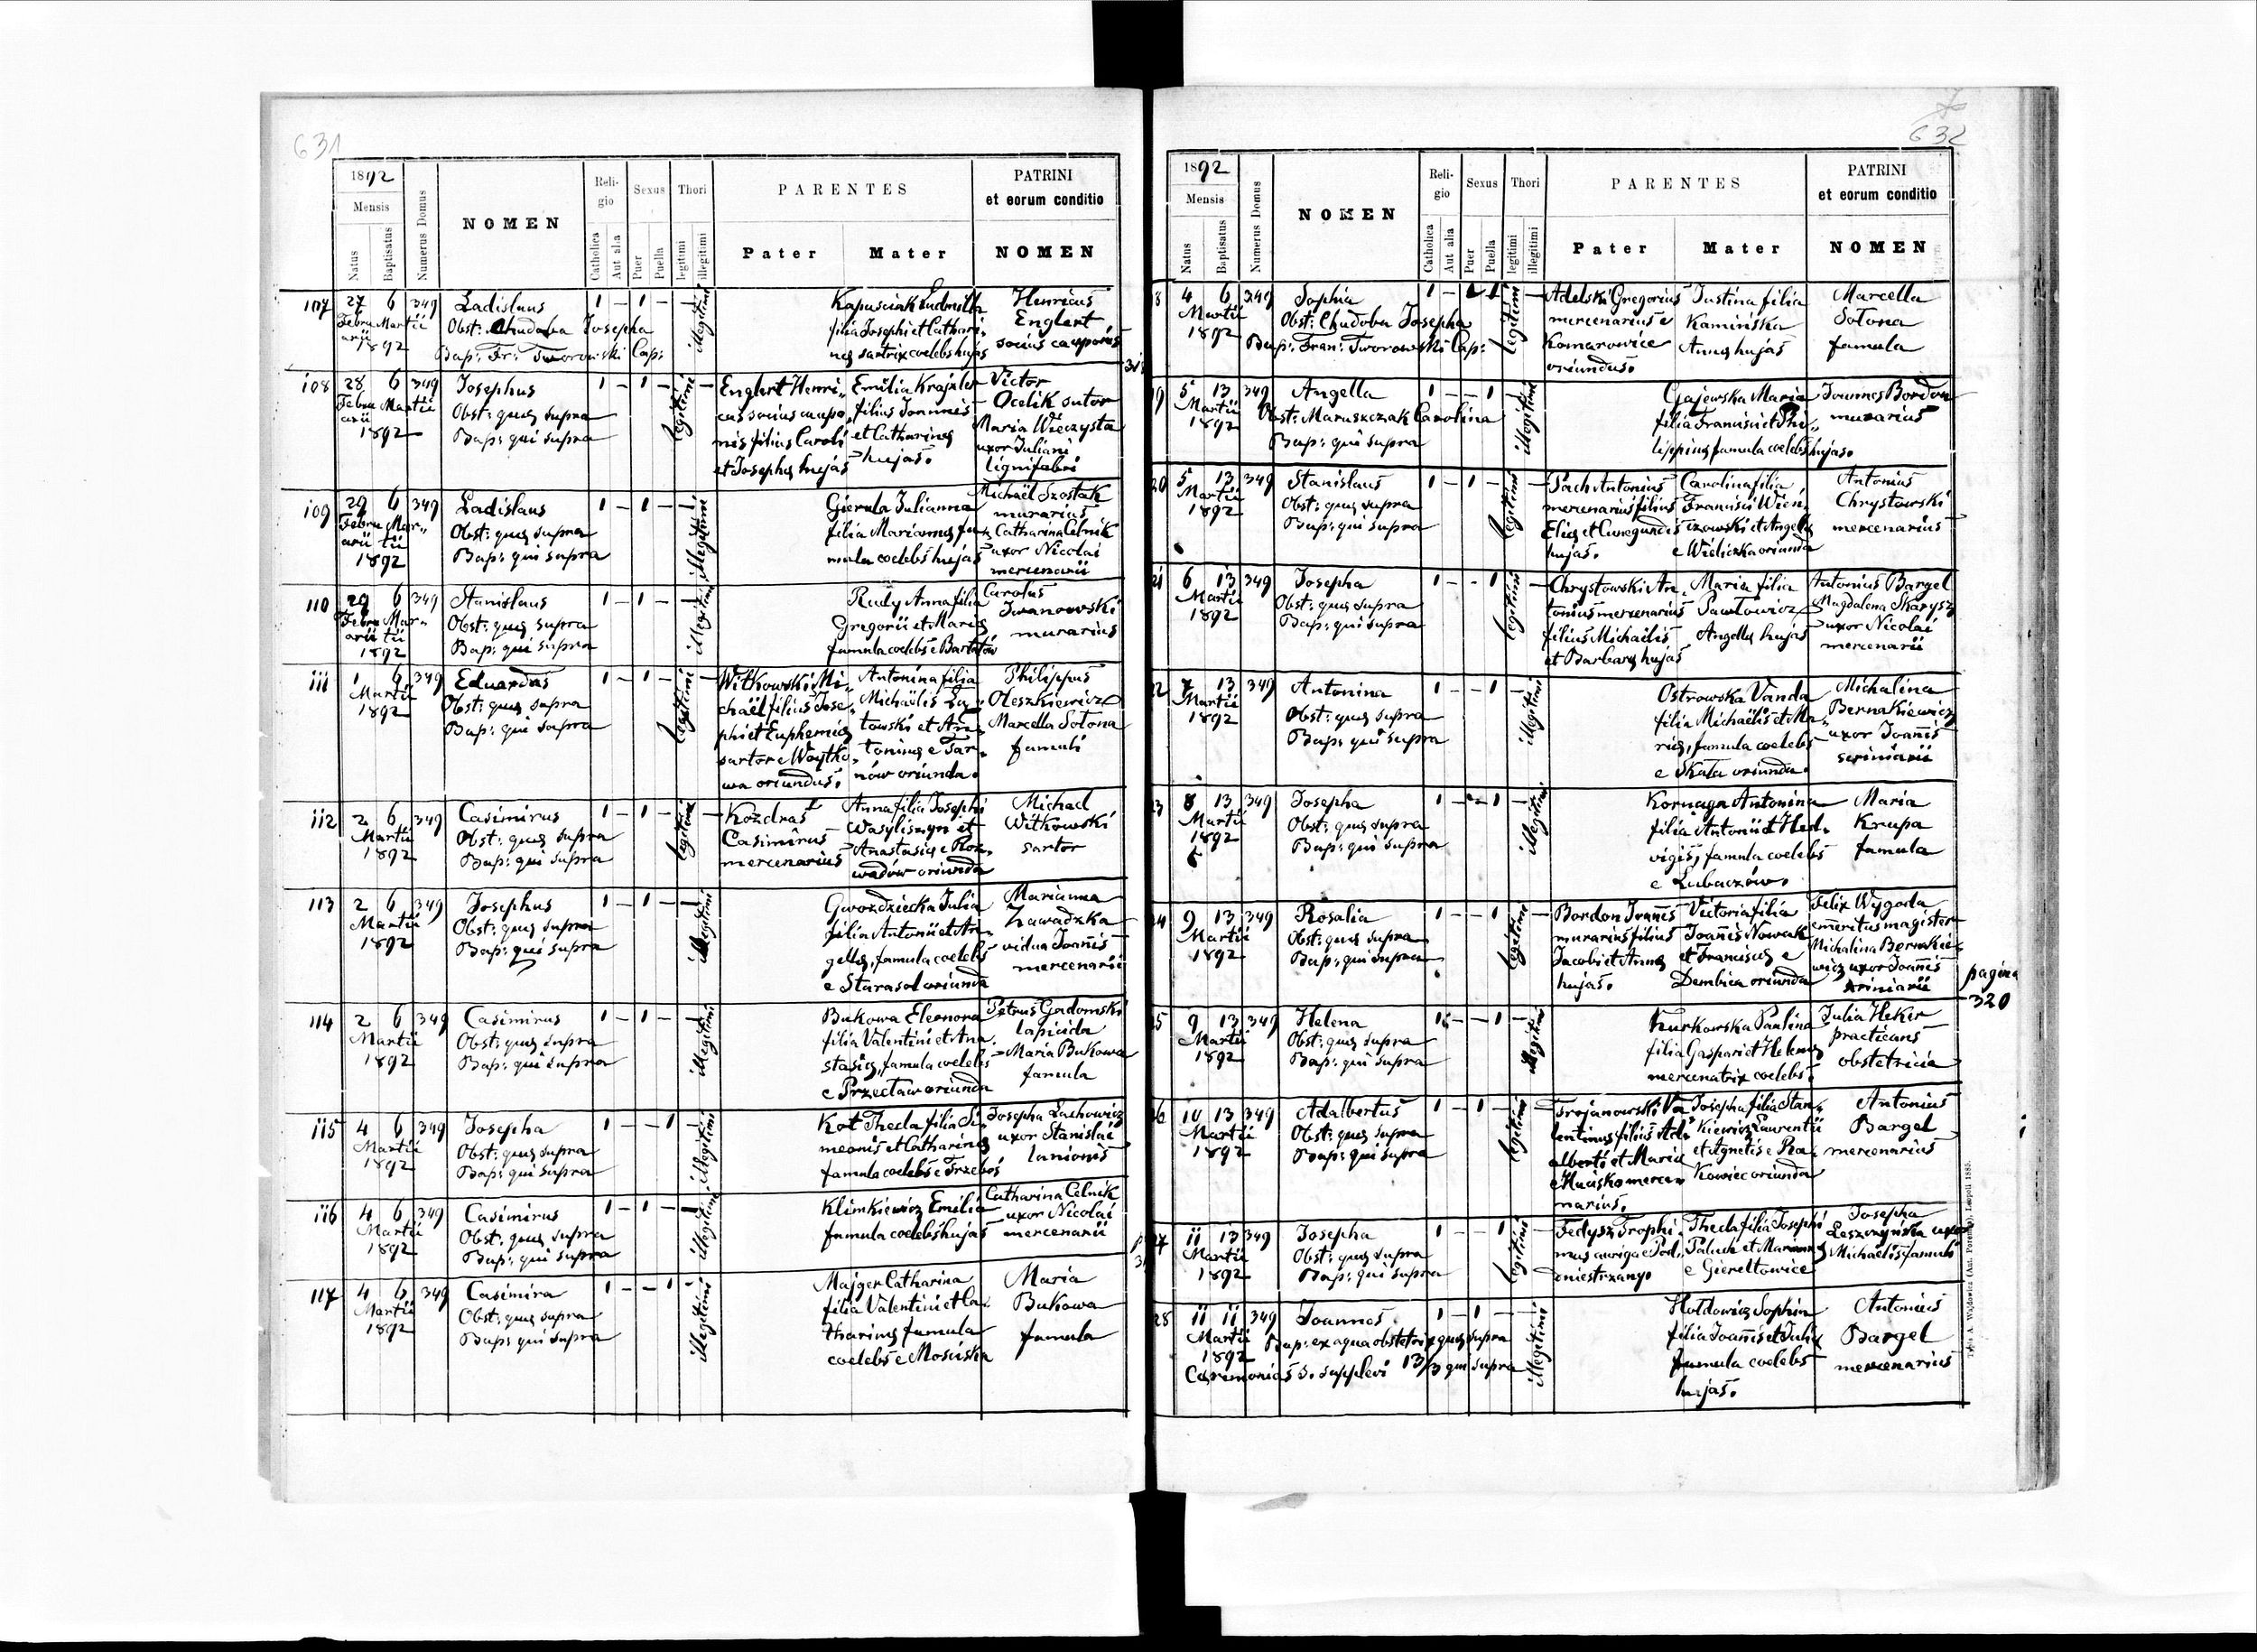 631
1892
Mensis
Natus
Baptisatus
Numerus Domus
NOMEN
Reli-
gio
Catholica
Aut alia
Sexus
Puer
Puella
Thori
legitimi
illegitimi
PARENTES
Pater
Mater
PATRINI
et eorum conditio
NOMEN
107
27 6 349
Febru Martii
arii
1892
Ladislaus
Obst: Chudoba Josepha
Bap: Fr: Tworowski Cap:
1 – 1 –
illegitimi
Kapusciak Ludmilla
filia Josephi et Cathari
nę sartrix coelebs hujas
Henricus
Englert
socius cauponis
108
28 6 349
Febru Martii
arii
1892
Josephus
Obst: quę supra
Bap: qui supra
1 – 1 –
legitimi
Englert Henri-
cus socius caupo-
nis filius Caroli
et Josephę hujas
Emilia Krajzler
filius Joannis
et Catharinę
hujas.
Victor
Ocelik sutor
Maria Wieczysta
uxor Juliani
lignifabri
109
29 6 349
Febru Mar-
arii tii
1892
Ladislaus
Obst: quę supra
Bap: qui supra
1 – 1 –
illegitimi
Gierula Julianna
filia Mariannę fa-
mula coelebs hujas
Michaël Szostak
murarius
Catharina Celnik
uxor Nicolai
mercenarii
110
29 6 349
Febru Mar-
arii tii
1892
Stanislaus
Obst: quę supra
Bap: qui supra
1 – 1 –
illegitimi
Rudy Anna filia
Gregorii et Marię
famula coelebs e Bartatów
Carolus
Iwanowski
murarius
111
1 6 349
Martii
1892
Eduardus
Obst: quę supra
Bap: qui supra
1 – 1 –
legitimi
Witkowski Mi-
chaël filius Jose-
phi et Euphemię
sartor e Woytko-
wa oriundus.
Antonina filia
Michaëlis
towski et An-
toninę e Tar-
nów oriunda.
Philippus
Oleszkiewicz
Marcella Sotona
famuli
112
2 6 349
Martii
1892
Casimirus
Obst: quę supra
Bap: qui supra
1 – 1 –
legitimi
Kozdraś
Casimirus
mercenarius
Anna filia Josephi
Wasyliszyn et
Anastasię e Roz-
wadów oriunda
Michael
Witkowski
sartor
113
2 6 349
Martii
1892
Josephus
Obst: quę supra
Bap: qui supra
1 – 1 –
illegitimi
Gwozdziecka Julia
filia Antonii et An-
gellę, famula coelebs
e Starasol oriunda
Marianna
Zawadzka
vidua Joannis
mercenarii
114
2 6 349
Martii
1892
Casimirus
Obst: quę supra
Bap: qui supra
1 – 1 –
illegitimi
Bukowa Eleonora
filia Valentini et Ana-
stasię, famula coelebs
e Przecław oriunda
Petrus Gadomski
lapicida
Maria Bukowa
famula
115
4 6 349
Martii
1892
Josepha
Obst: quę supra
Bap: qui supra
1 – – 1
illegitimi
Kot Thecla filia Si-
meonis et Catharinę
famula coelebs e Trzeboś
Josepha Lachowicz
uxor Stanislai
lanionis
116
4 6 349
Martii
1892
Casimirus
Obst: quę supra
Bap: qui supra
1 – 1 –
illegitimi
Klimkiewicz Emilia
famula coelebs hujas
Catharina Celnik
uxor Nicolai
mercenarii
117
4 6 349
Martii
1892
Casimira
Obst: quę supra
Bap: qui supra
1 – – 1
illegitimi
Majger Catharina
filia Valentini et Ca-
tharinę famula
coelebs e Mościska
Maria
Bukowa
famula
632
1892
Mensis
Natus
Baptisatus
Numerus Domus
NOMEN
Reli-
gio
Catholica
Aut alia
Sexus
Puer
Puella
Thori
legitimi
illegitimi
PARENTES
Pater
Mater
PATRINI
et eorum conditio
NOMEN
8
4 6 349
Martii
1892
Sophia
Obst: Chudoba Josepha
Bap: Fran: Tworowski Cap:
legitimi
Adelski Gregorius
mercenarius e
Komarowice
oriundus.
Justina filia
Kamińska
Annę hujas
Marcella
Sotona
famula
19
5 13 349
Martii
1892
Angella
Obst: Maruszczak Carolina
Bap: qui supra
1 – – 1
illegitimi
Gajewska Maria
filia Francisci et Phi-
lippinę famula coelebs hujas.
Joannes Bordon
murarius
20
5 13 349
Martii
1892
Stanislaus
Obst: quę supra
Bap: qui supra
1 – 1 –
legitimi
Pach Antonius
mercen filius
Elię et Cunegundis
hujas.
Carolina filia
Francisci Wien-
czowski et Angelę
e Wieliczka oriunda
Antonius
Chrystowski
mercenarius
21
6 13 349
Martii
1892
Josepha
Obst: quę supra
Bap: qui supra
1 – – 1
legitimi
Chrystowski An-
tonius mercenarius
filius Michaëlis
et Barbarę hujas
Maria filia
Pawłowicz
Angellę hujas
Antonius Bargel
Magdalena Skarysz
uxor Nicolai
mercenarii
22
7 13 349
Martii
1892
Antonina
Obst: quę supra
Bap: qui supra
1 – – 1
illegitimi
Ostrowska Vanda
filia Michaëlis et Ma-
rię, famula coelebs
e Skała oriunda.
Michalina
Bernakiewicz
uxor Joannis
scriniarii
23
8 13 349
Martii
1892
Josepha
Obst: quę supra
Bap: qui supra
1 – – 1
illegitimi
Kornaga Antonina
filia Antonii et Hed-
vigis, famula coelebs
e Lubaczów.
Maria
Krupa
famula
24
9 13 349
Martii
1892
Rosalia
Obst: quę supra
Bap: qui supra
1 – – 1
legitimi
Bordon Joannes
murarius filius
Jacobi et Annę
hujas.
Victoria filia
Joannis Nowak
et Franciscę e
Dembica oriunda
Felix Wygoda
emeritus magister
Michalina Bernakie-
wicz uxor Joannis
scriniarii
pagina
320
25
9 13 349
Martii
1892
Helena
Obst: quę supra
Bap: qui supra
1 – – 1
illegitimi
Żurkowska Paulina
filia Gaspari et Helenę
mercenatrix coelebs.
Julia Heker
practicans
obstetricia
26
10 13 349
Martii
1892
Adalbertus
Obst: quę supra
Bap: qui supra
1 – 1 –
legitimi
Trojanowski Va-
lentinus filius Adal-
berti et Marię
e Hucisko merce-
narius.
Josepha filia Stan-
kiewicz Laurentii
et Agnetis e Ra-
kowiec oriunda
Antonius
Bargel
mercenarius
27
11 13 349
Martii
1892
Josepha
Obst: quę supra
Bap: qui supra
1 – – 1
legitimi
Fedysz Trophi-
mus auriga e Pod-
dniestrzany.
Thecla filia Josephi
Paluch et Mariannę
e Gierełtowice
Josepha
Leszczyńska uxor
Michaëlis famuli
28
11 11 349
Martii
1892
Joannes
Bap: ex aqua obstetrix quę supra
Cęremonias s. supplevi 13/3 qui supra
1 – 1 –
illegitimi
Hołdowicz Sophia
filia Joannis et Julię
famula coelebs
hujas.
Antonius
Bargel
mercenarius